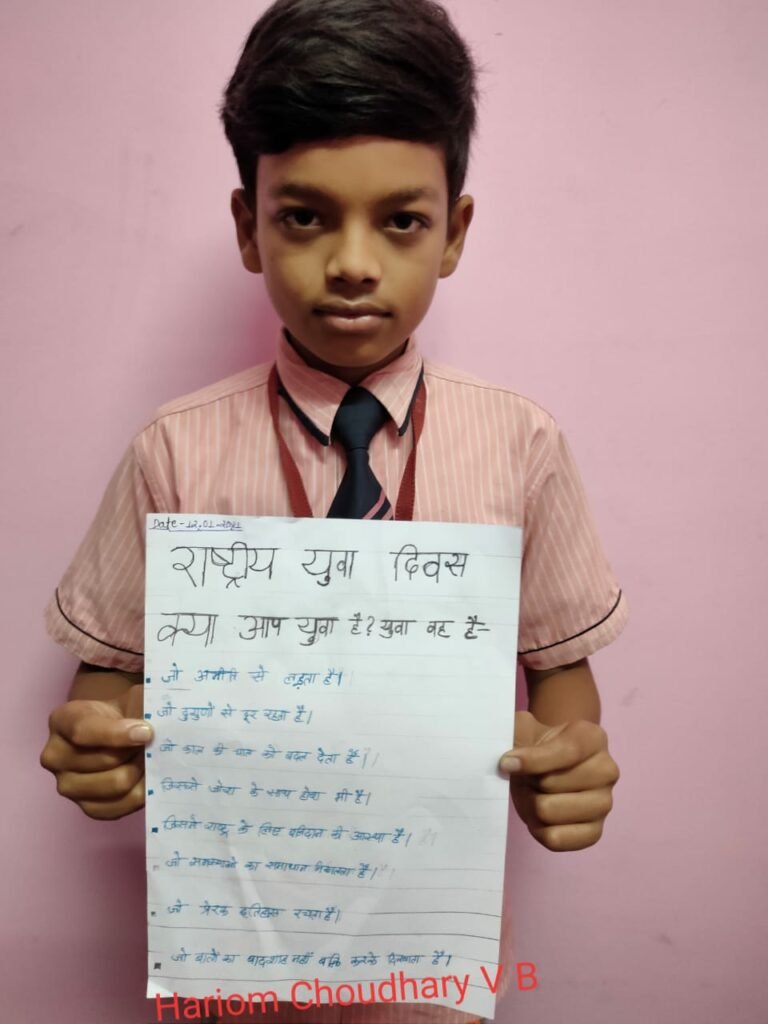 Date-12.01-2021
राष्ट्रीय युवा दिवस
क्या आप युवा है? युवा वह है-
▪ जो अनीति से लड़ता है।
▪ जो दुर्गुणों से दूर रहता है।
▪ जो काल की चाल को बदल देता है।
▪ जिसमें जोश के साथ होश भी है।
▪ जिसमें राष्ट्र के लिए बलिदान की आस्था है।
▪ जो समस्याओ का समाधान निकालता है।
▪ जो प्रेरक इतिहास रचता है।
▪ जो बातों का बादशाह नहीं बल्कि करके दिखाता है।
Hariom Choudhary V B